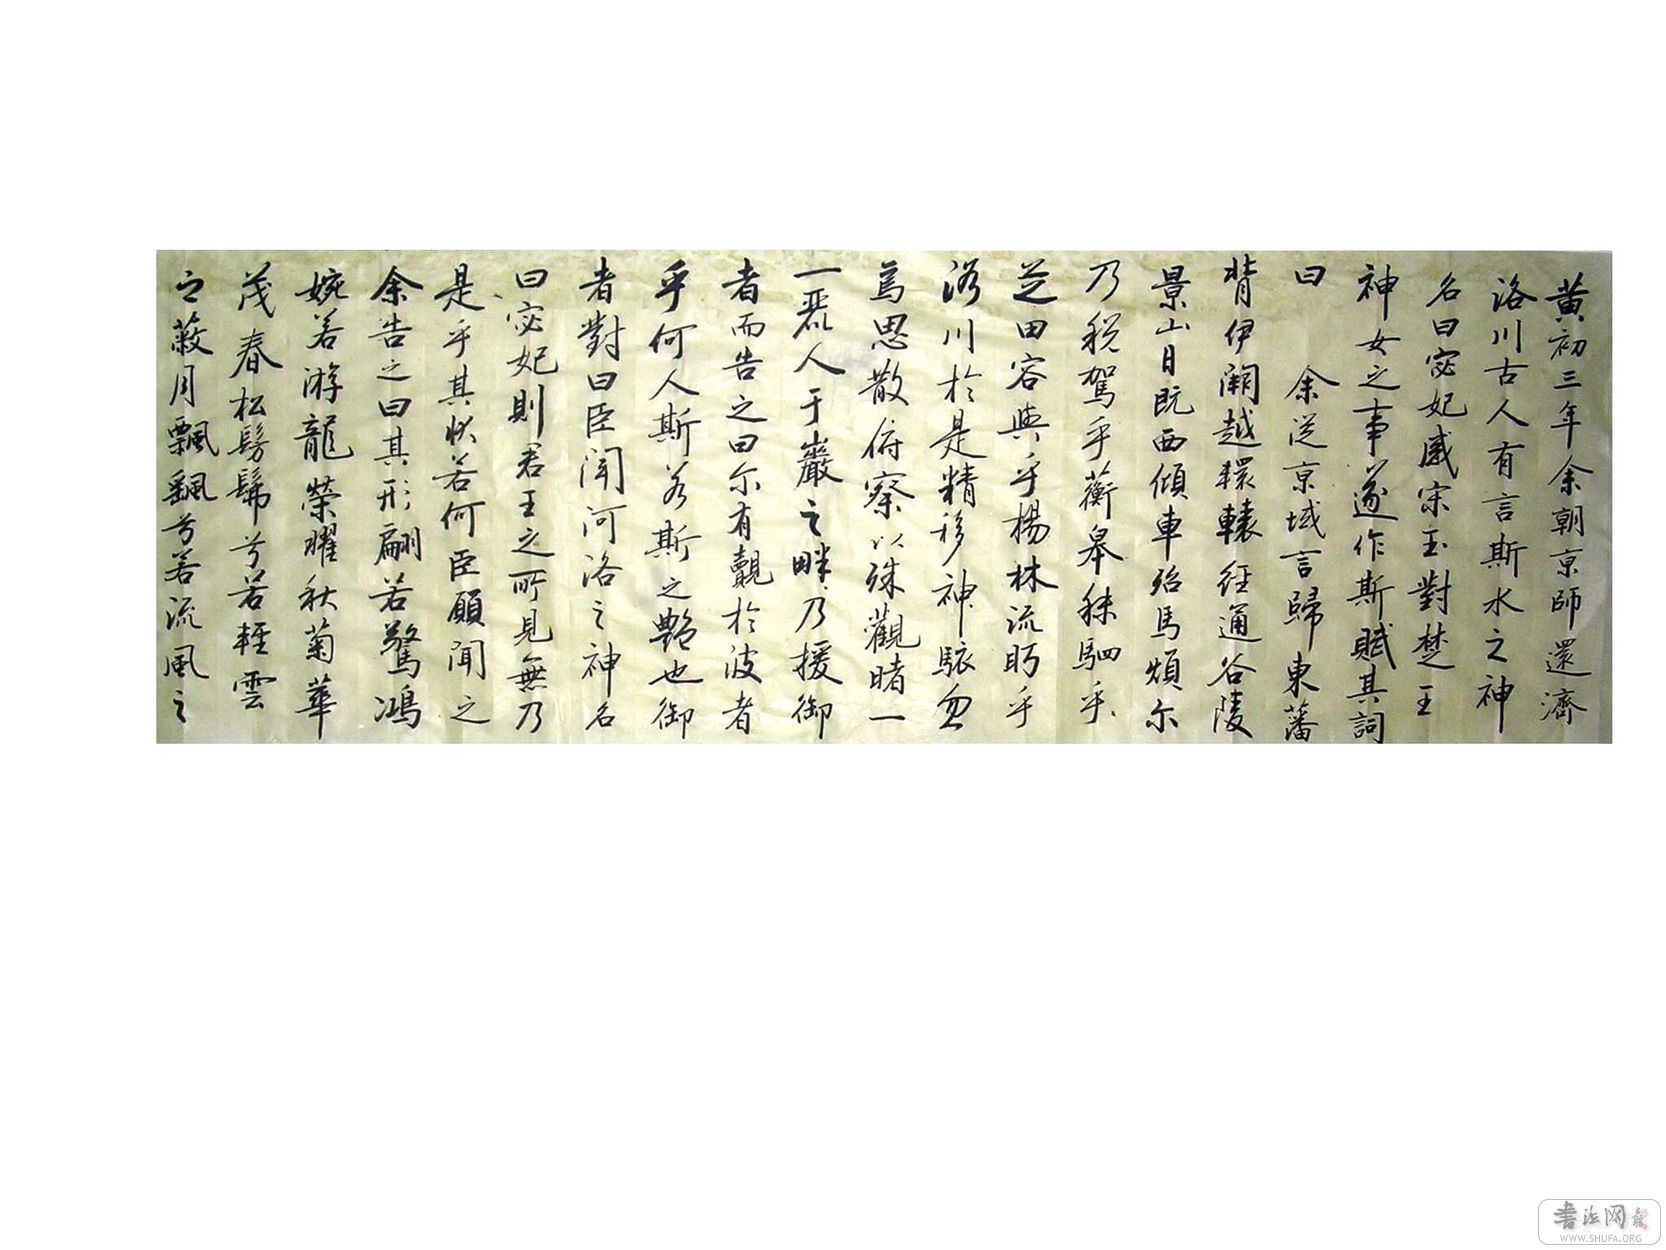 黄初三年余朝京師還濟
洛川古人有言斯水之神
名曰宓妃感宋玉對楚王
神女之事遂作斯賦其詞
曰 余従京域言歸東藩
背伊闕越轘轅經通谷陵
景山日既西傾車殆馬煩尔
乃税駕乎蘅皋秣駟乎
芝田容與乎楊林流眄乎
洛川於是精移神駭忽
焉思散俯察以殊觀睹一
一麗人于巖之畔乃援御
者而告之曰尔有覿於彼者
乎何人斯若斯之艷也御
者對曰臣聞河洛之神名
曰宓妃則君王之所見無乃
是乎其状若何臣願聞之
余告之曰其形翩若驚鴻
婉若游龍榮曜秋菊華
茂春松髣髴兮若輕雲
之蔽月飄飖兮若流風之
書法网
WWW.SHUFA.ORG